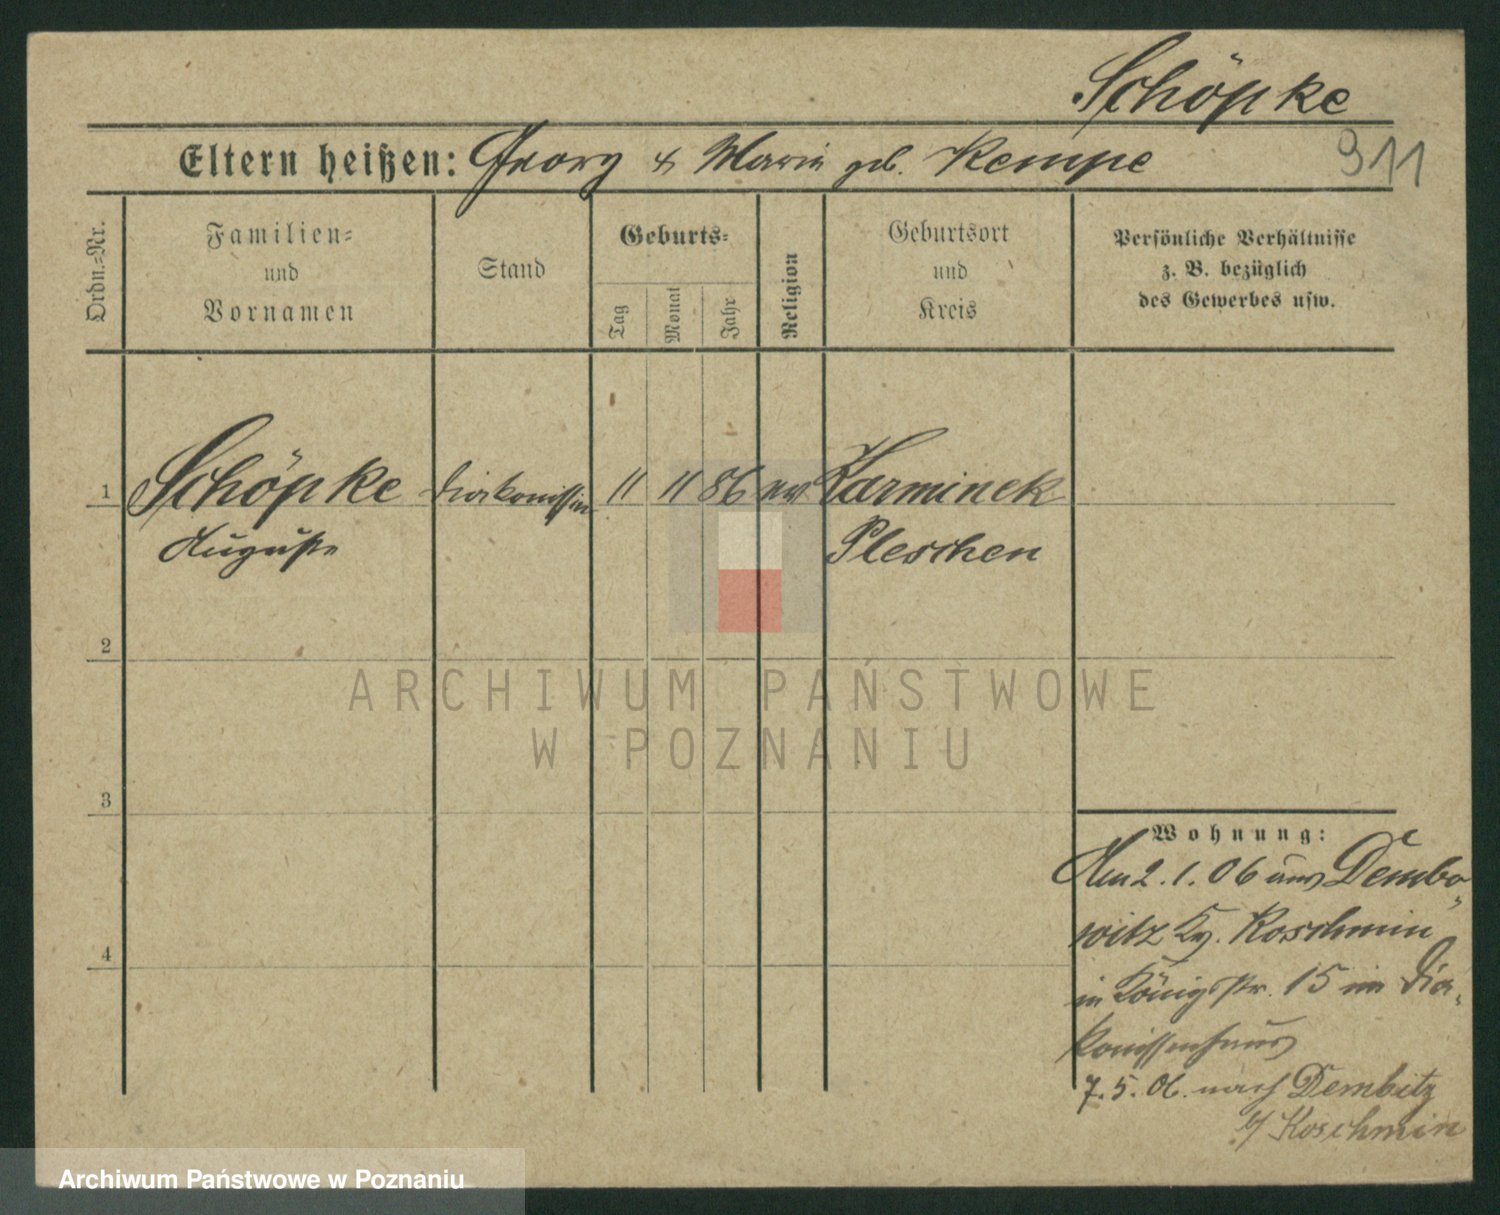 Schöpke
Eltern heißen: Georg & Maria geb. Kempe
911
Ordn.-Nr.
Familien-
und
Vornamen
Stand
Geburts-
Tag
Monat
Jahr
Religion
Geburtsort
und
Kreis
Persönliche Verhältnisse
z. B. bezüglich
des Gewerbes usw.
1 Schöpke Diakonissin 11 11 86 ev Karminek
Auguste Pleschen
2
ARCHIWUM PAŃSTWOWE
W POZNANIU
3
Wohnung:
Am 2.1.06 aus Dembo-
witz Kr. Koschmin
in Königstr. 15 im Dia-
konissenhaus
4
7.5.06. nach Dembitz
Koschmin
Archiwum Państwowe w Poznaniu